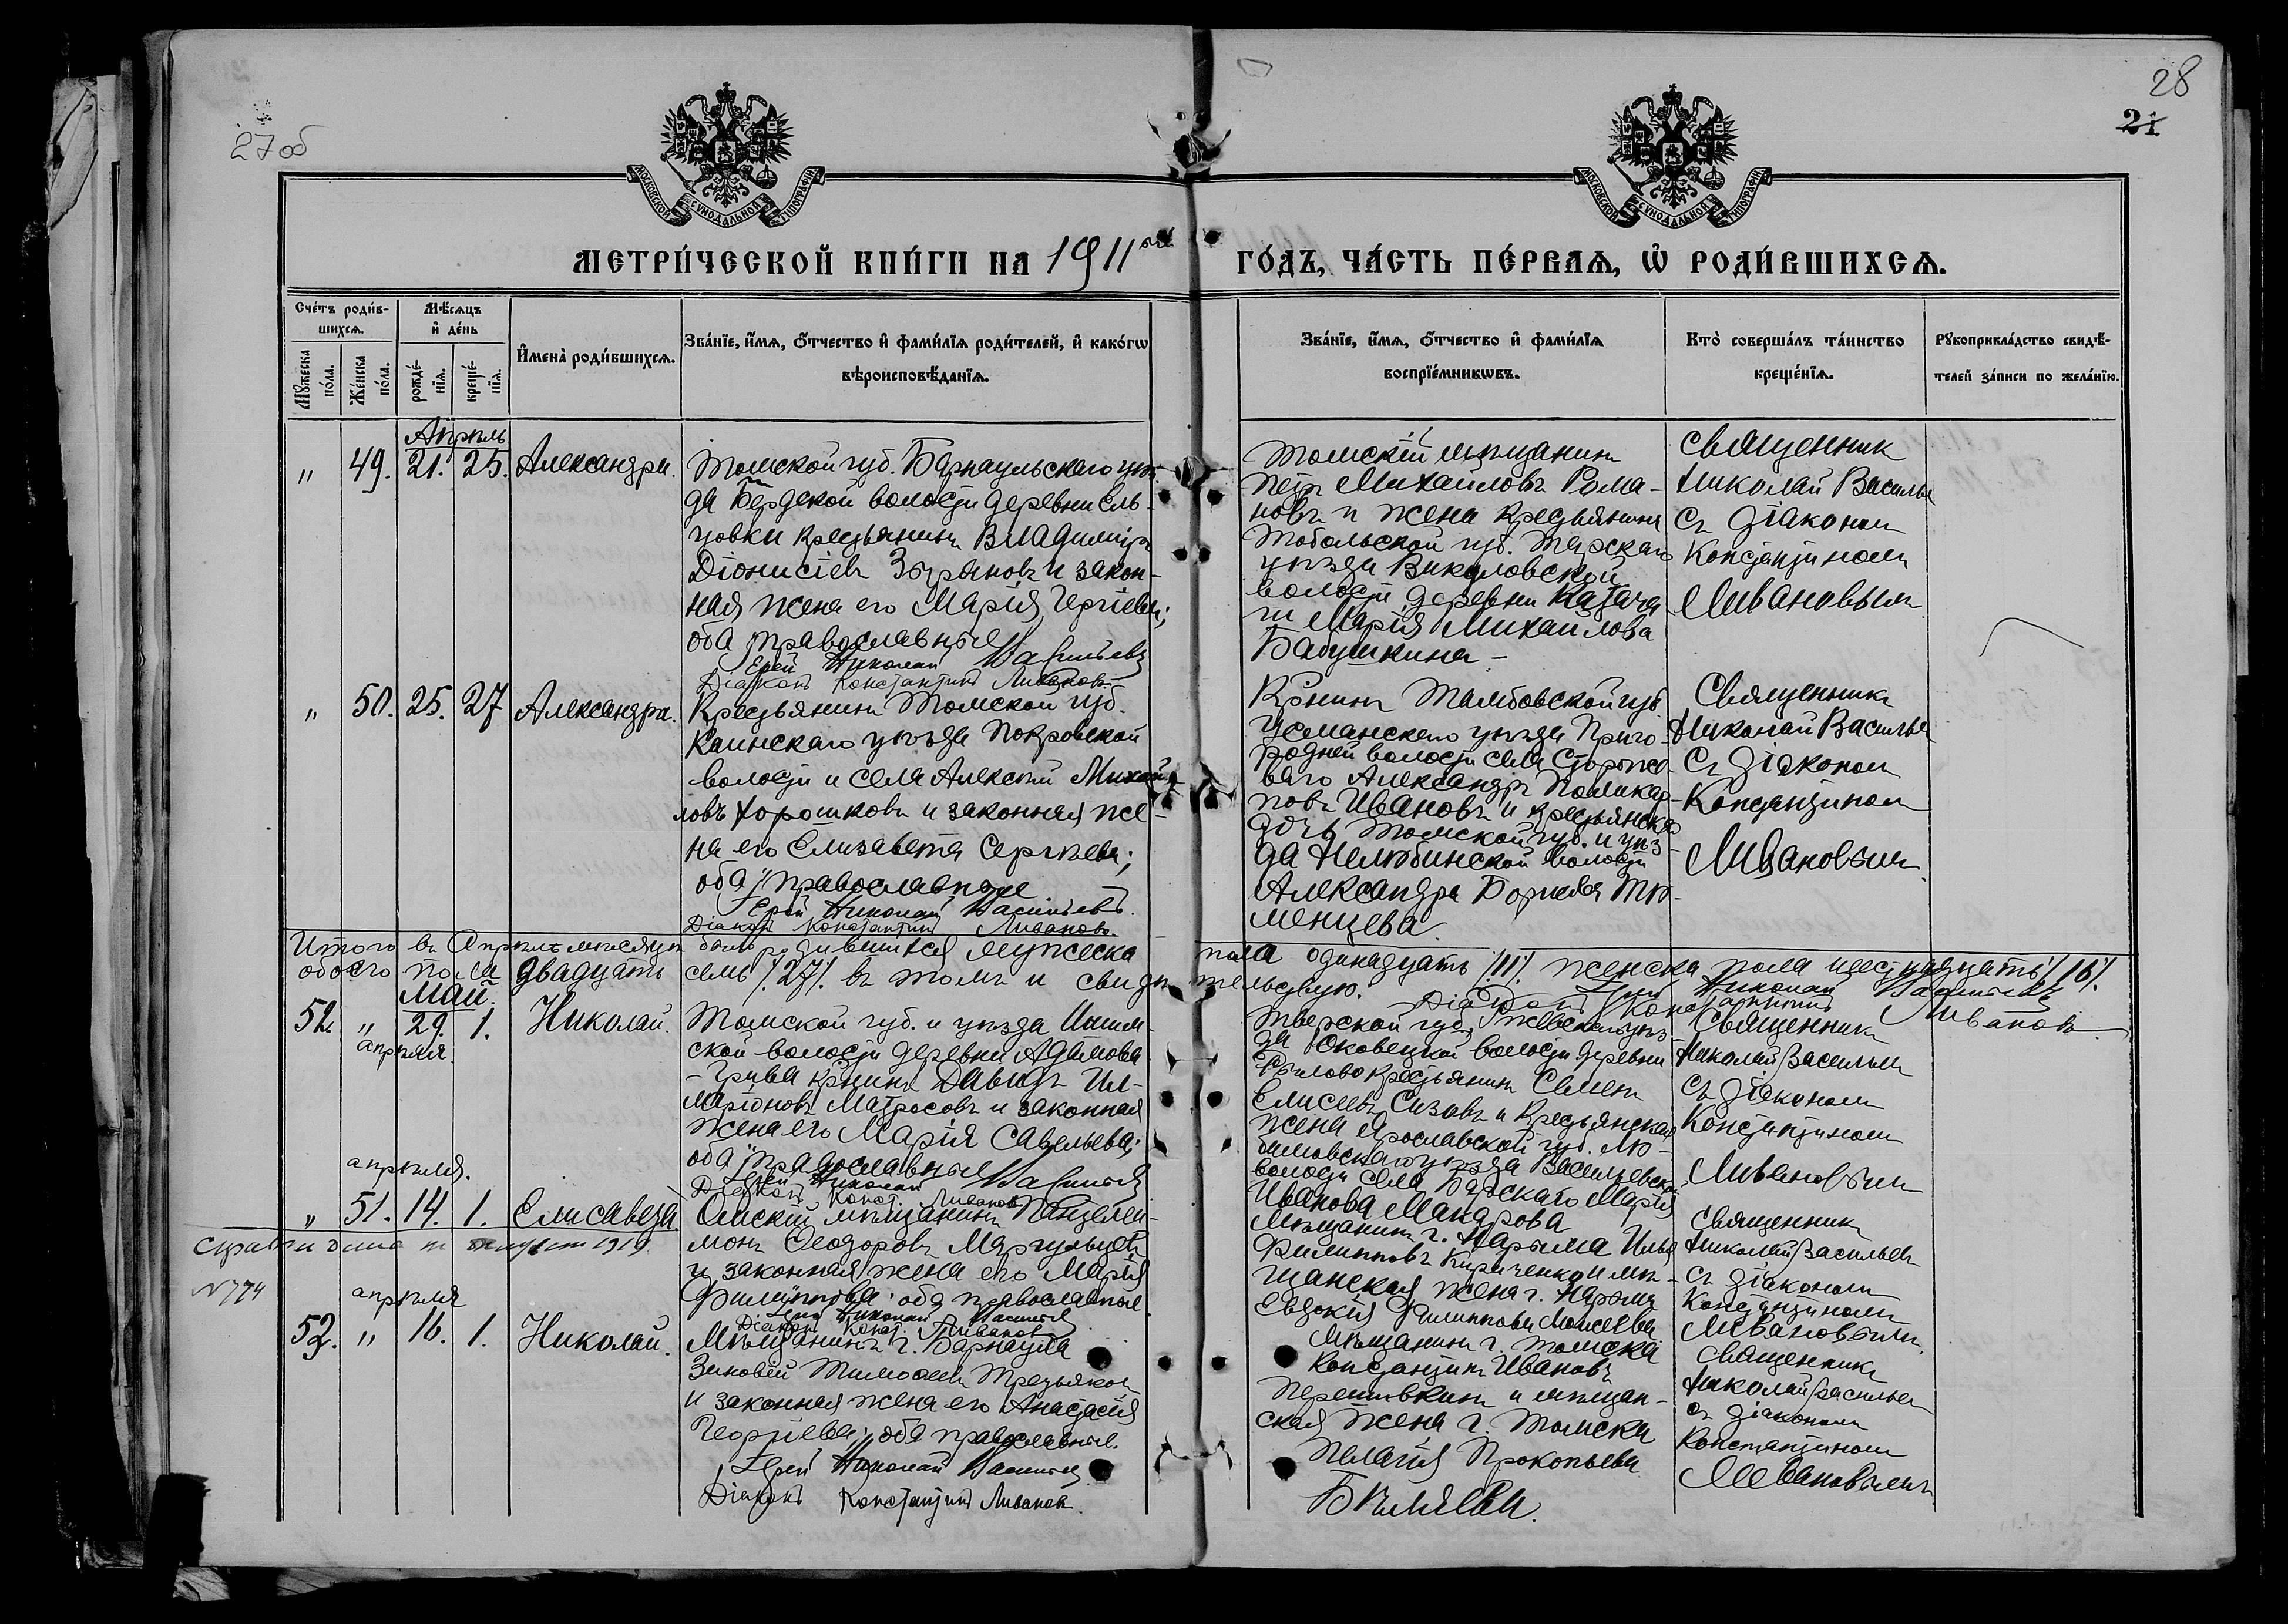 27 об
28
21
МОСКОВСКОЙ СУНОДАЛЬНОЙ ТИПОГРАФІИ
МОСКОВСКОЙ СУНОДАЛЬНОЙ ТИПОГРАФІИ
МЕТРИ́ЧЕСКОЙ КНИ́ГИ НА 1911ый
ГО́ДЪ, ЧА́СТЬ ПЕ́РВАѦ, Ѽ РОДИ́ВШИХСѦ.
Сче́тъ роди́в-
шихсѧ.
Мꙋ́жеска по́ла.
Же́нска по́ла.
Мѣ́сѧцъ
и҆ де́нь
рожде́-нїѧ.
креще́-нїѧ.
И҆мена̀ роди́вшихсѧ.
Зва́нїе, и҆́мѧ, ѻ҆́тчество и҆ фами́лїѧ роди́телей, и҆ како́гѡ
вѣроисповѣ́данїѧ.
Зва́нїе, и҆́мѧ, ѻ҆́тчество и҆ фами́лїѧ
воспрїе́мникѡвъ.
Кто̀ соверша́лъ та́инство
креще́нїѧ.
Рꙋкоприкла́дство свидѣ́-
телей за́писи по жела́нїю.
Апрѣль
„ 49. 21. 25. Александра.
Томской губ. Барнаульскаго уѣз-
да Бердской волости деревни Ель-
цовки крестьянинъ Владимiръ
Дiонисiевъ Зыряновъ и закон-
ная жена его Марiя Сергiева;
оба православные
Ерей Николай Васильевъ
Дiаконъ Константинъ Ливановъ
Томскiй мѣщанинъ
Петръ Михайловъ Рома-
новъ и жена крестьянина
Тобольской губ. Тарскаго
уѣзда Викуловской
волости деревни Казачей
Марiя Михайлова
Бабушкина –
Священникъ
Николай Васильевъ
съ дiакономъ
Константиномъ
Ливановымъ
„ 50. 25. 27 Александра.
Крестьянинъ Томской губ.
Каинскаго уѣзда Покровской
волости и села Алексѣй Михай-
ловъ Хорошковъ и законная же-
на его Елизавета Сергѣева;
оба православные
Ерей Николай Васильевъ.
Дiаконъ Константинъ Ливановъ.
Кр-нинъ Тамбовской губ.
Усманскаго уѣзда Приго-
родней волости села Сторожо-
ваго Александръ Поликар-
повъ Ивановъ и крестьянская
дочь Томской губ. и уѣз-
да Нелюбинской волости
Александра Борисова Тю-
менцева
Священникъ
Николай Васильевъ
съ дiакономъ
Константиномъ
Ливановымъ.
Итого въ Апрѣлѣ мѣсяцѣ было родившихся мужеска пола одинадцать /11/ женска пола шестнадцать /16/.
обоего пола двадцать семь /27/. въ томъ и свидѣтельствую.
Николай Васильевъ
Дiаконъ Константинъ Ливановъ
Май.
52. „ 29. 1. Николай.
апрѣля.
Томской губ. и уѣзда Ишим-
ской волости деревни Адамова
– Грива кр-нинъ Давидъ Ил-
ларiоновъ Матросовъ и законная
жена его Марiя Савельева;
оба православные
Ерей Николай Васильевъ
Дiаконъ Конст. Ливановъ
Тверской губ. Ржевскаго уѣз-
да Оковецкой волости деревни
крестьянинъ Семенъ
Елисеевъ Сизовъ и крестьянская
жена Ярославской губ. Лю-
бимовскаго уѣзда Васильевской
волости села Марiя
Иванова Макарова
Священникъ
Николай Васильевъ
съ дiакономъ
Константиномъ
Ливановымъ
апрѣля.
„ 51. 14. 1. Елисавета
Омскiй мѣщанинъ Пантелей-
монъ Ѳеодоровъ
и законная жена его Марiя
Филиппова; оба православные
Ерей Николай Васильевъ
Дiаконъ Конст. Ливановъ
Мѣщанинъ г. Нарыма Илья
Филипповъ Кириченко и мѣ-
щанская жена г. Нарыма
Евдокiя Филиппова Моисеева
Священникъ
Николай Васильевъ
съ дiакономъ
Константиномъ
Ливановымъ.
1919
№ 774
апрѣля
53. „ 16. 1. Николай.
Мѣщанинъ г. Барнаула
Зиновiй Тимоѳеевъ Третьяковъ
и законная жена его Анастасiя
Георгiева; оба православные.
Ерей Николай Васильевъ
Дiаконъ Константинъ Ливановъ.
Мѣщанинъ г. Томска
Константинъ Ивановъ
и мѣщан-
ская жена г. Томска
Пелагiя Прокопьева
Бѣляева.
Священникъ
Николай Васильевъ
съ дiакономъ
Константиномъ
Ливановымъ